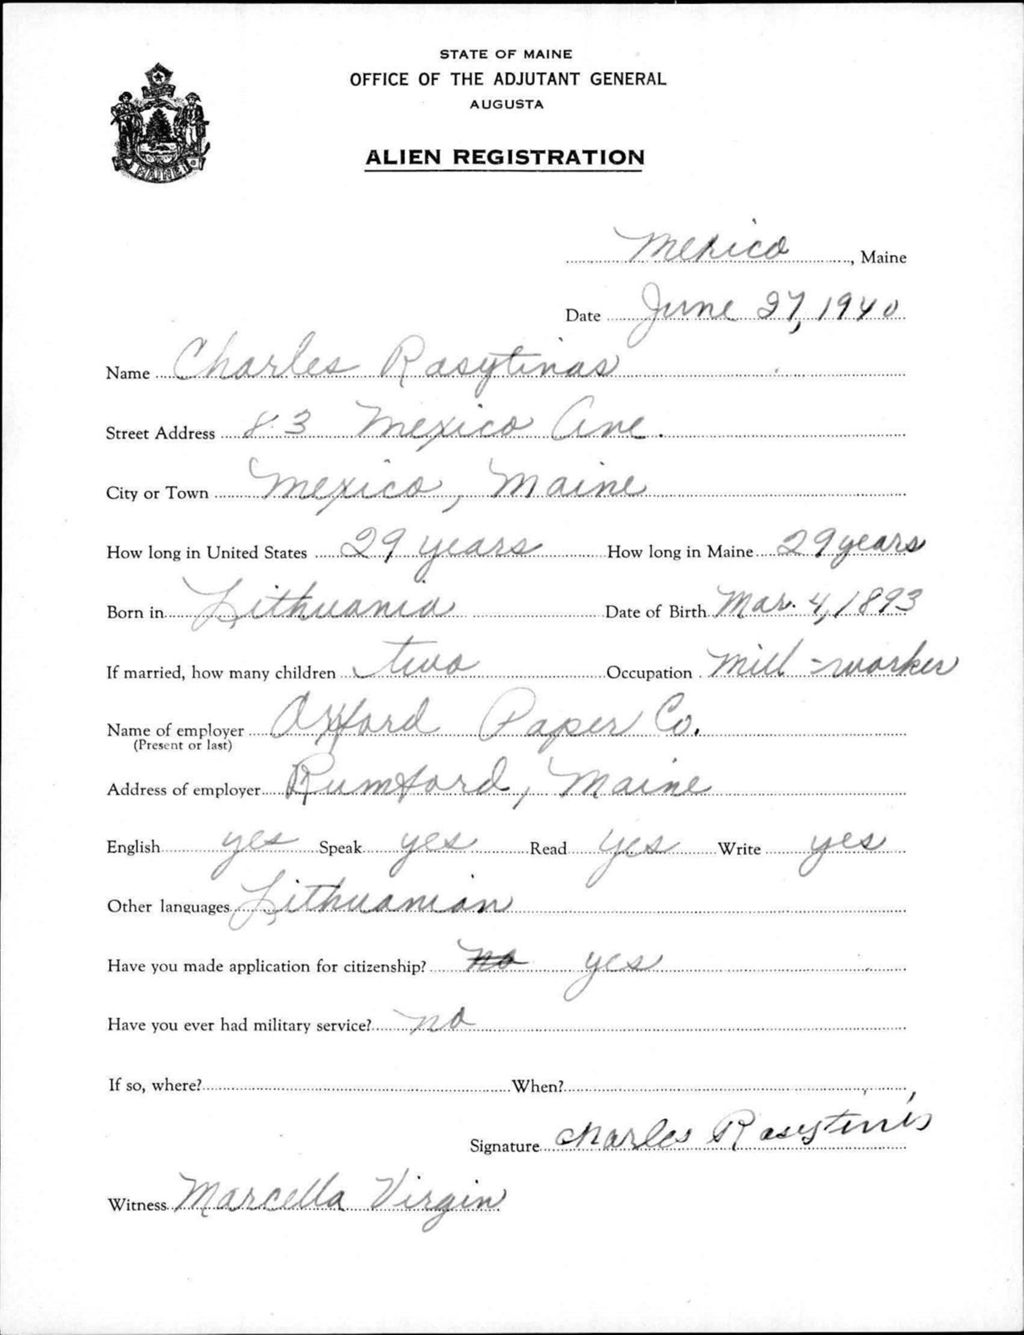 STATE OF MAINE
OFFICE OF THE ADJUTANT GENERAL
AUGUSTA
ALIEN REGISTRATION
MAINE
Mexico, Maine
Date June 27, 1940
Name Charles Rasytinas
Street Address 83 Mexico Ave.
City or Town Mexico, Maine
How long in United States 29 years How long in Maine 29 years
Born in Lithuania Date of Birth Mar. 4, 1893
If married, how many children two Occupation Mill-worker
Name of employer Oxford Paper Co.
(Present or last)
Address of employer Rumford, Maine
English yes Speak yes Read yes Write yes
Other languages Lithuanian
Have you made application for citizenship? no yes
Have you ever had military service? no
If so, where? When?
Signature Charles Rasytinis
Witness Marcella Virgin